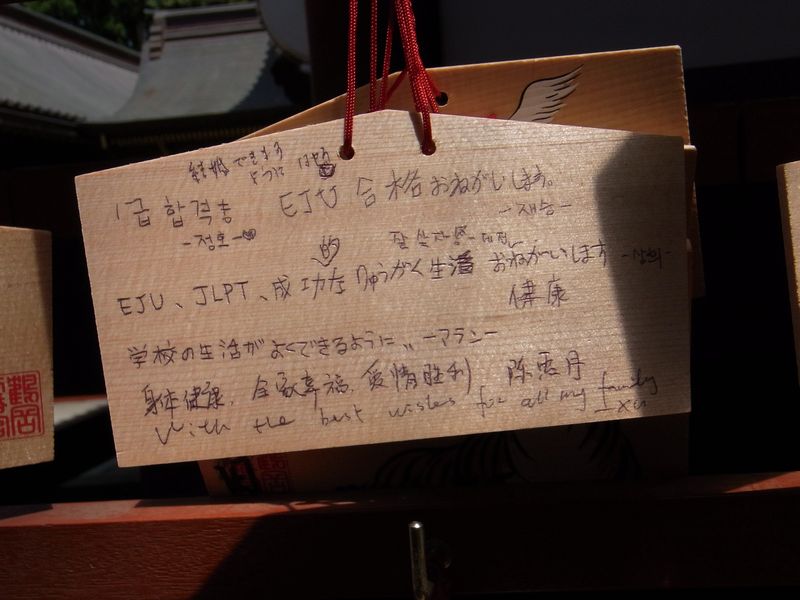 結婚できますように
1級 합격 EJU 合格おねがいします。
-정호- -재승-
的
EJU、JLPT、成功な りゅうがく生活 おねがいします
健康
学校の生活がよくできるように、、 ーアランー
身体健康、全家幸福、愛情胜利 陈雲丹
With the best wishes for all my family
Xu
鶴岡